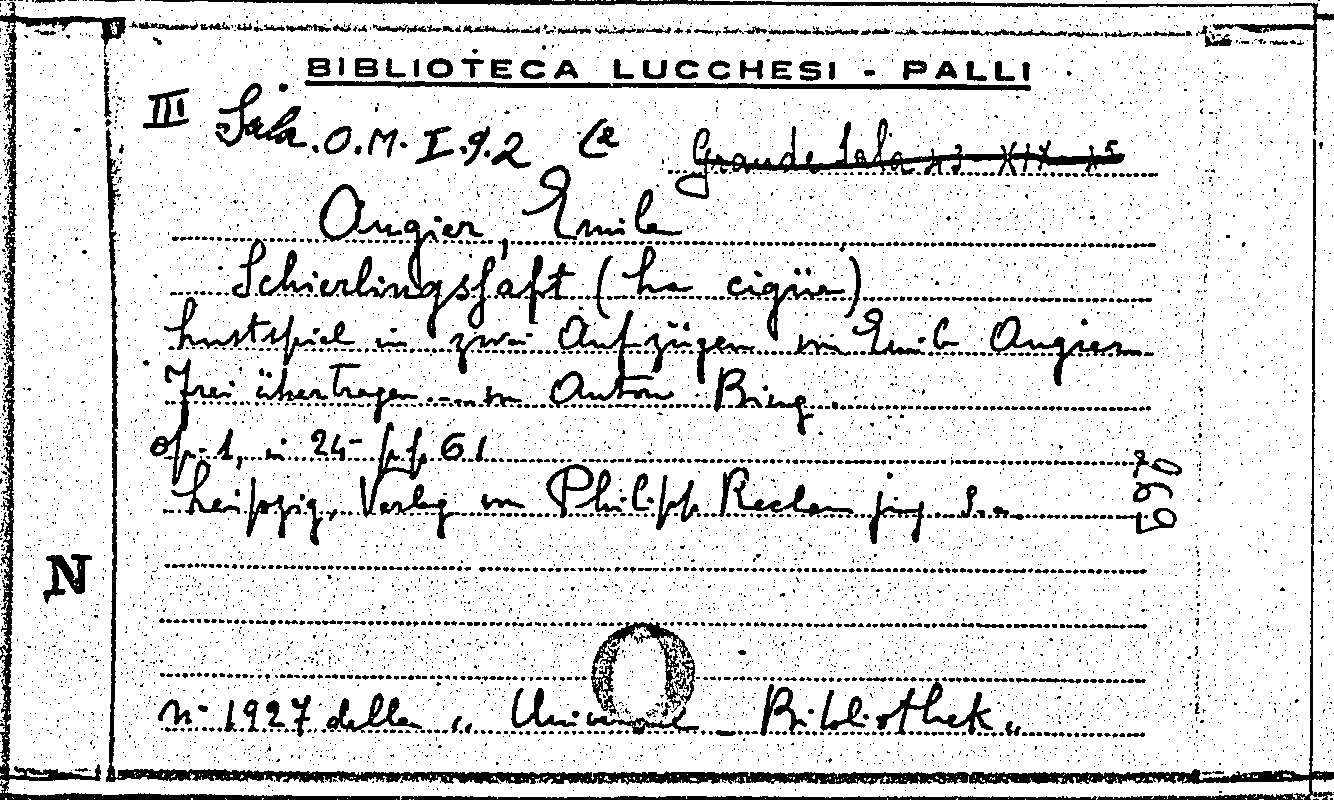 BIBLIOTECA LUCCHESI - PALLI
III Sala.O.M. I.9.2 (2
Grande Sala 43-XIX-45
Augier, Emile
Schierlingssaft (La cigüe)
Lustspiel in zwei Aufzügen von Emile Augier
Frei übertragen.... von Anton Bing.
op. 1, in 24- pp. 61
Leipzig, Verlag von Philipp Reclam jun. s.a.
269
N
n. 1927 della „ Universal Bibliothek „